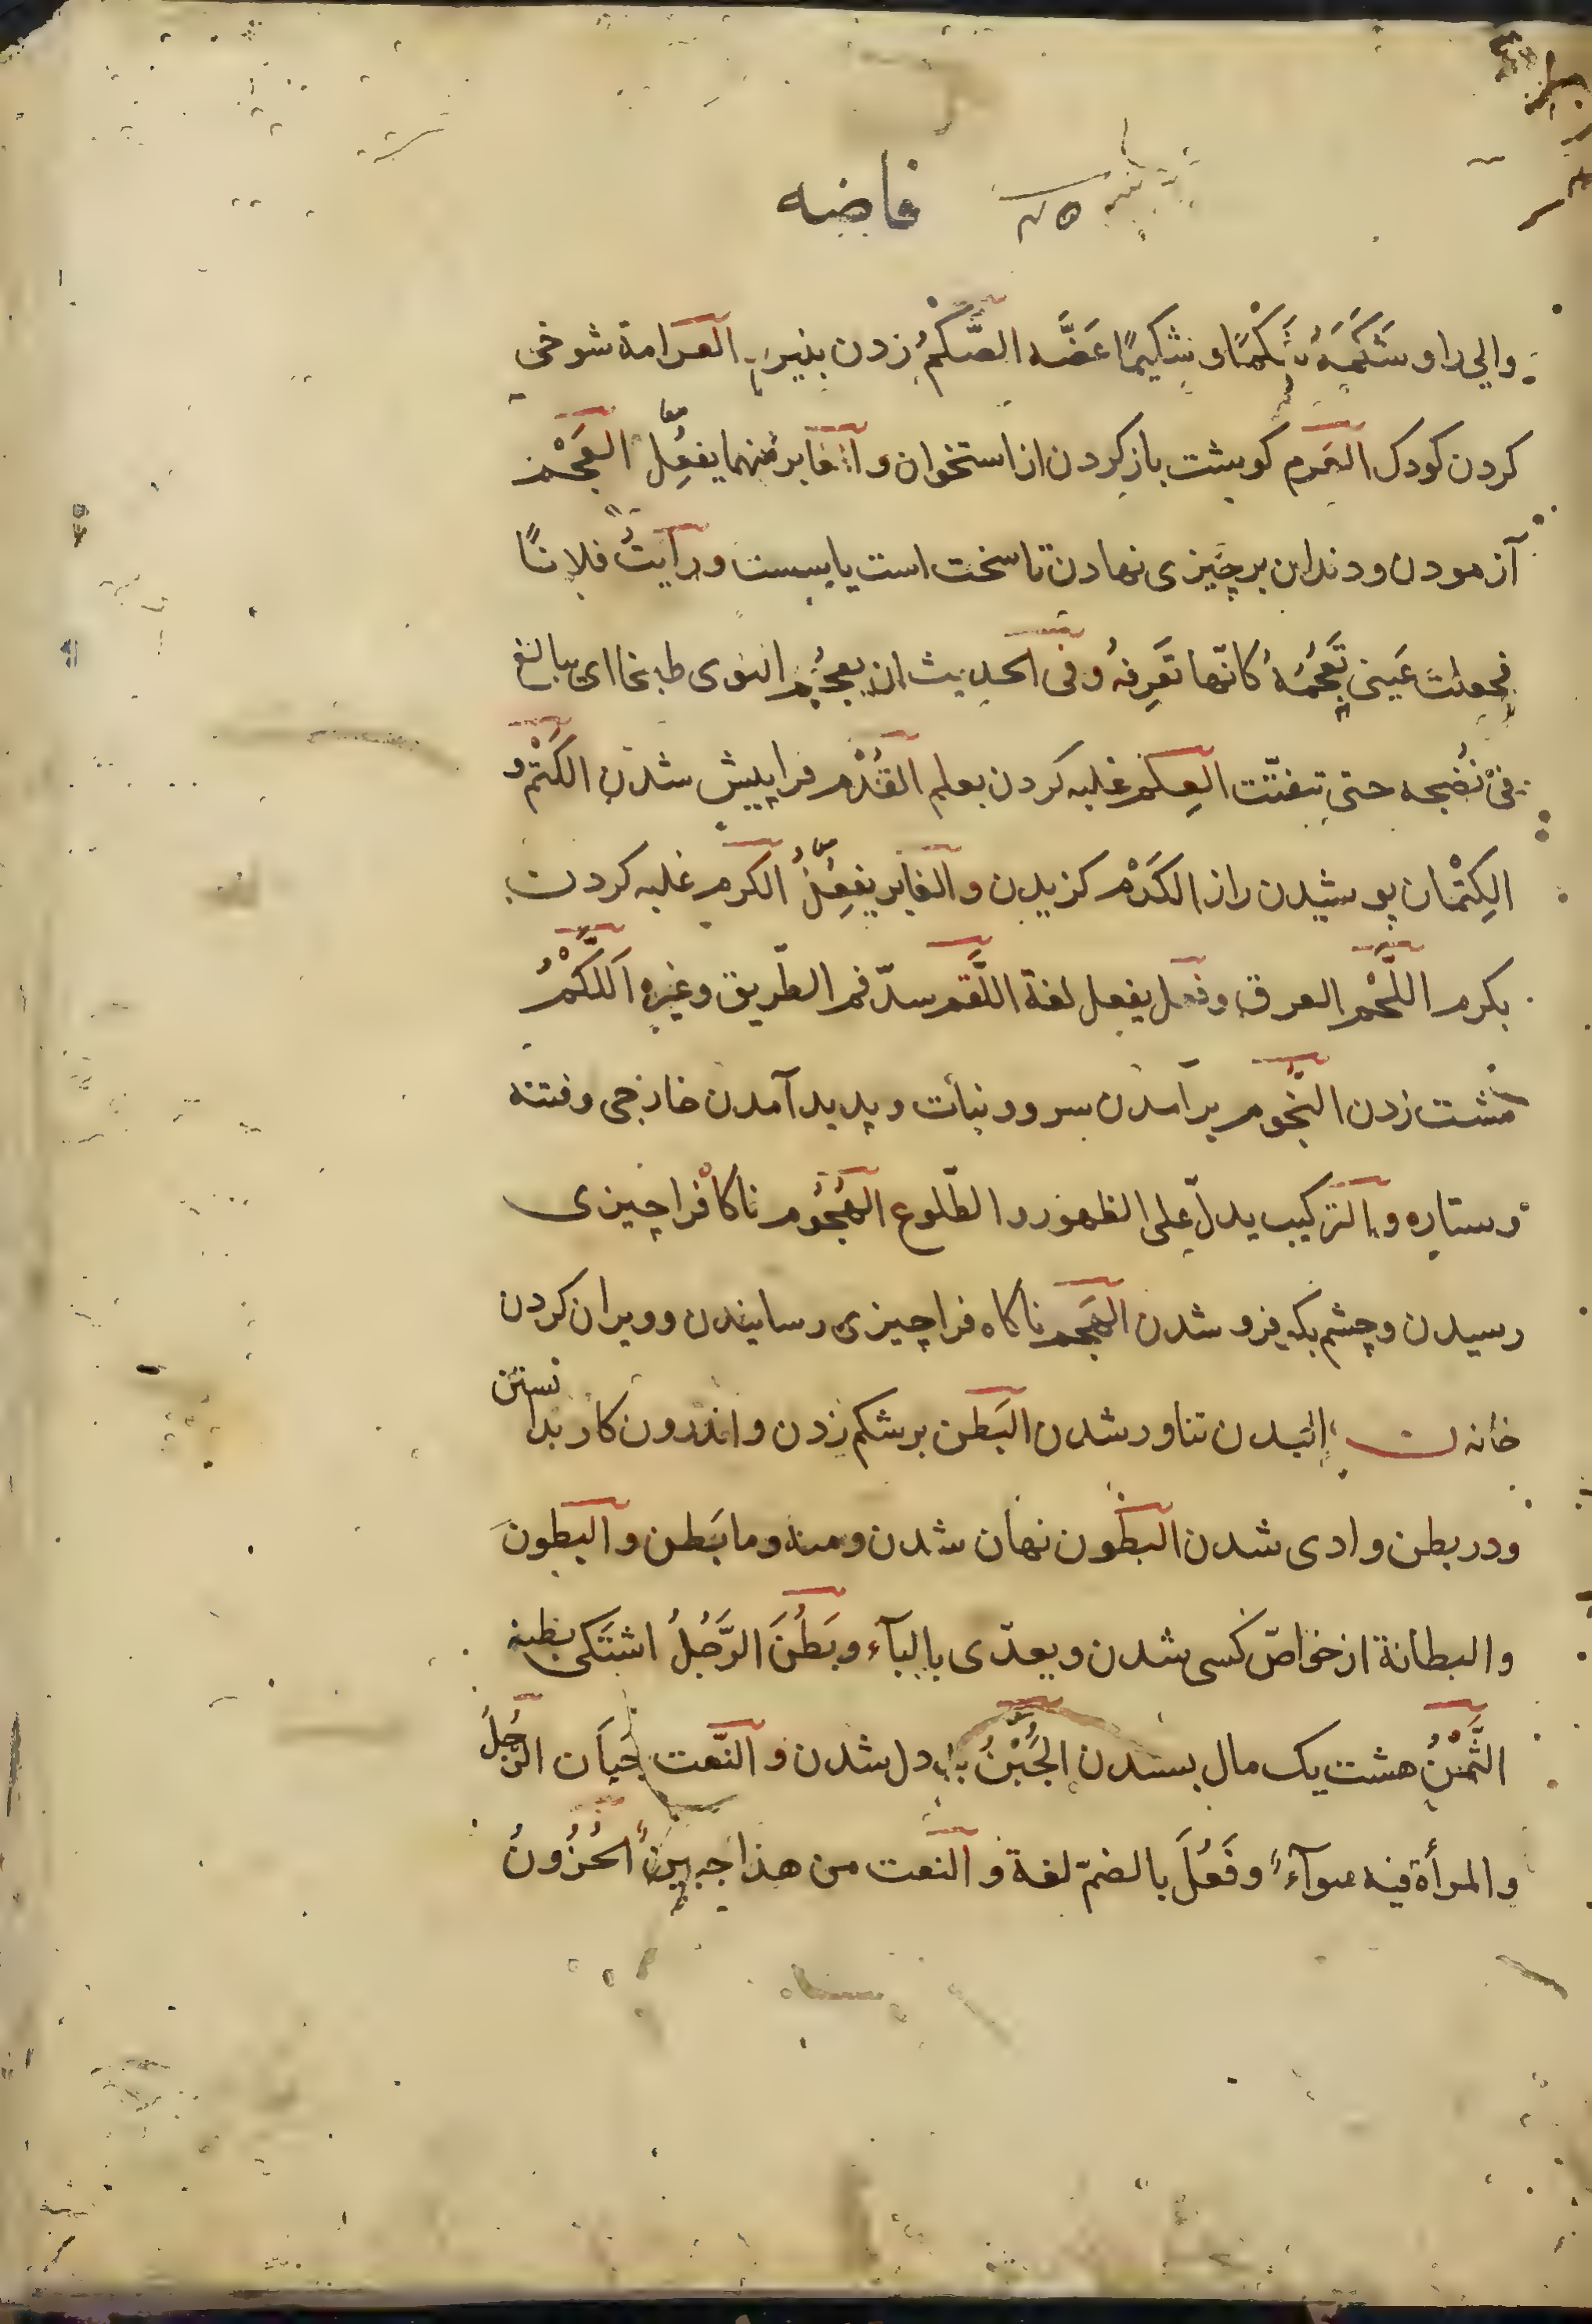 فاضه
والی را و شَكَمَهُ شَكْمًا و شكيمًا عَضَّه الصَّكْمُ زدن بنیرو العرامة شوخی
کردن کودک العَرم کوشت باز کردن از استخوان و الغابر منهما یفعُِل معا العَجْم
آزمودن و دندان بر چیزی نهادن تا سخت است یا سست و رأیتُ فلانًا
فجعلت عَینی تَعجُمُهُ کانّها تَعرِفهُ و فی الحدیث ان یعجُم النوی طبخا ای یبالغ
فی نُضجه حتی تتفتّت العِکم غلبه کردن بعلم القُدْم فرا پیش شدن الکَتْم و
الکِتْمان پوشیدن راز الکَدْم کزیدن و الغابر یفعُِلُ معا الکرم غلبه کردن
بکرم اللَّحْم العرق و فعل یفعل لغة اللَّقم سدّ فم الطّریق و غیره اللَّكْمُ
مشت زدن النّجُوم بر آمدن سرو و نبات و پدید آمدن خارجی و فتنه
و ستاره و الترکیب یدلّ علی الظهور و الطّلوع الهُجُوم ناکاه فرا چیزی
رسیدن و چشم بکو فرو شدن الهَجم ناکاه فرا چیزی رسانیدن و ویران کردن
خانه ن البَدن تناور شدن البَطن بر شکم زدن و اندرون کار بدانستن
و در بطن وادی شدن البُطون نهان شدن و منه و ما بَطن و البطون
و البطانة از خواصّ کسی شدن و یعدّی بالبآء و بَطُنَ الرَّجُلُ اشتَکی بطنه
الثَّمْنُ هشت یک مال بستدن الجُبْنُ بد دل شدن و النّعت جبان الرّجلُ
و المرأة فیه سوآءً و فَعُلَ بالضمّ لغة و النعت من هذا جبینٌ الحُزُونُ